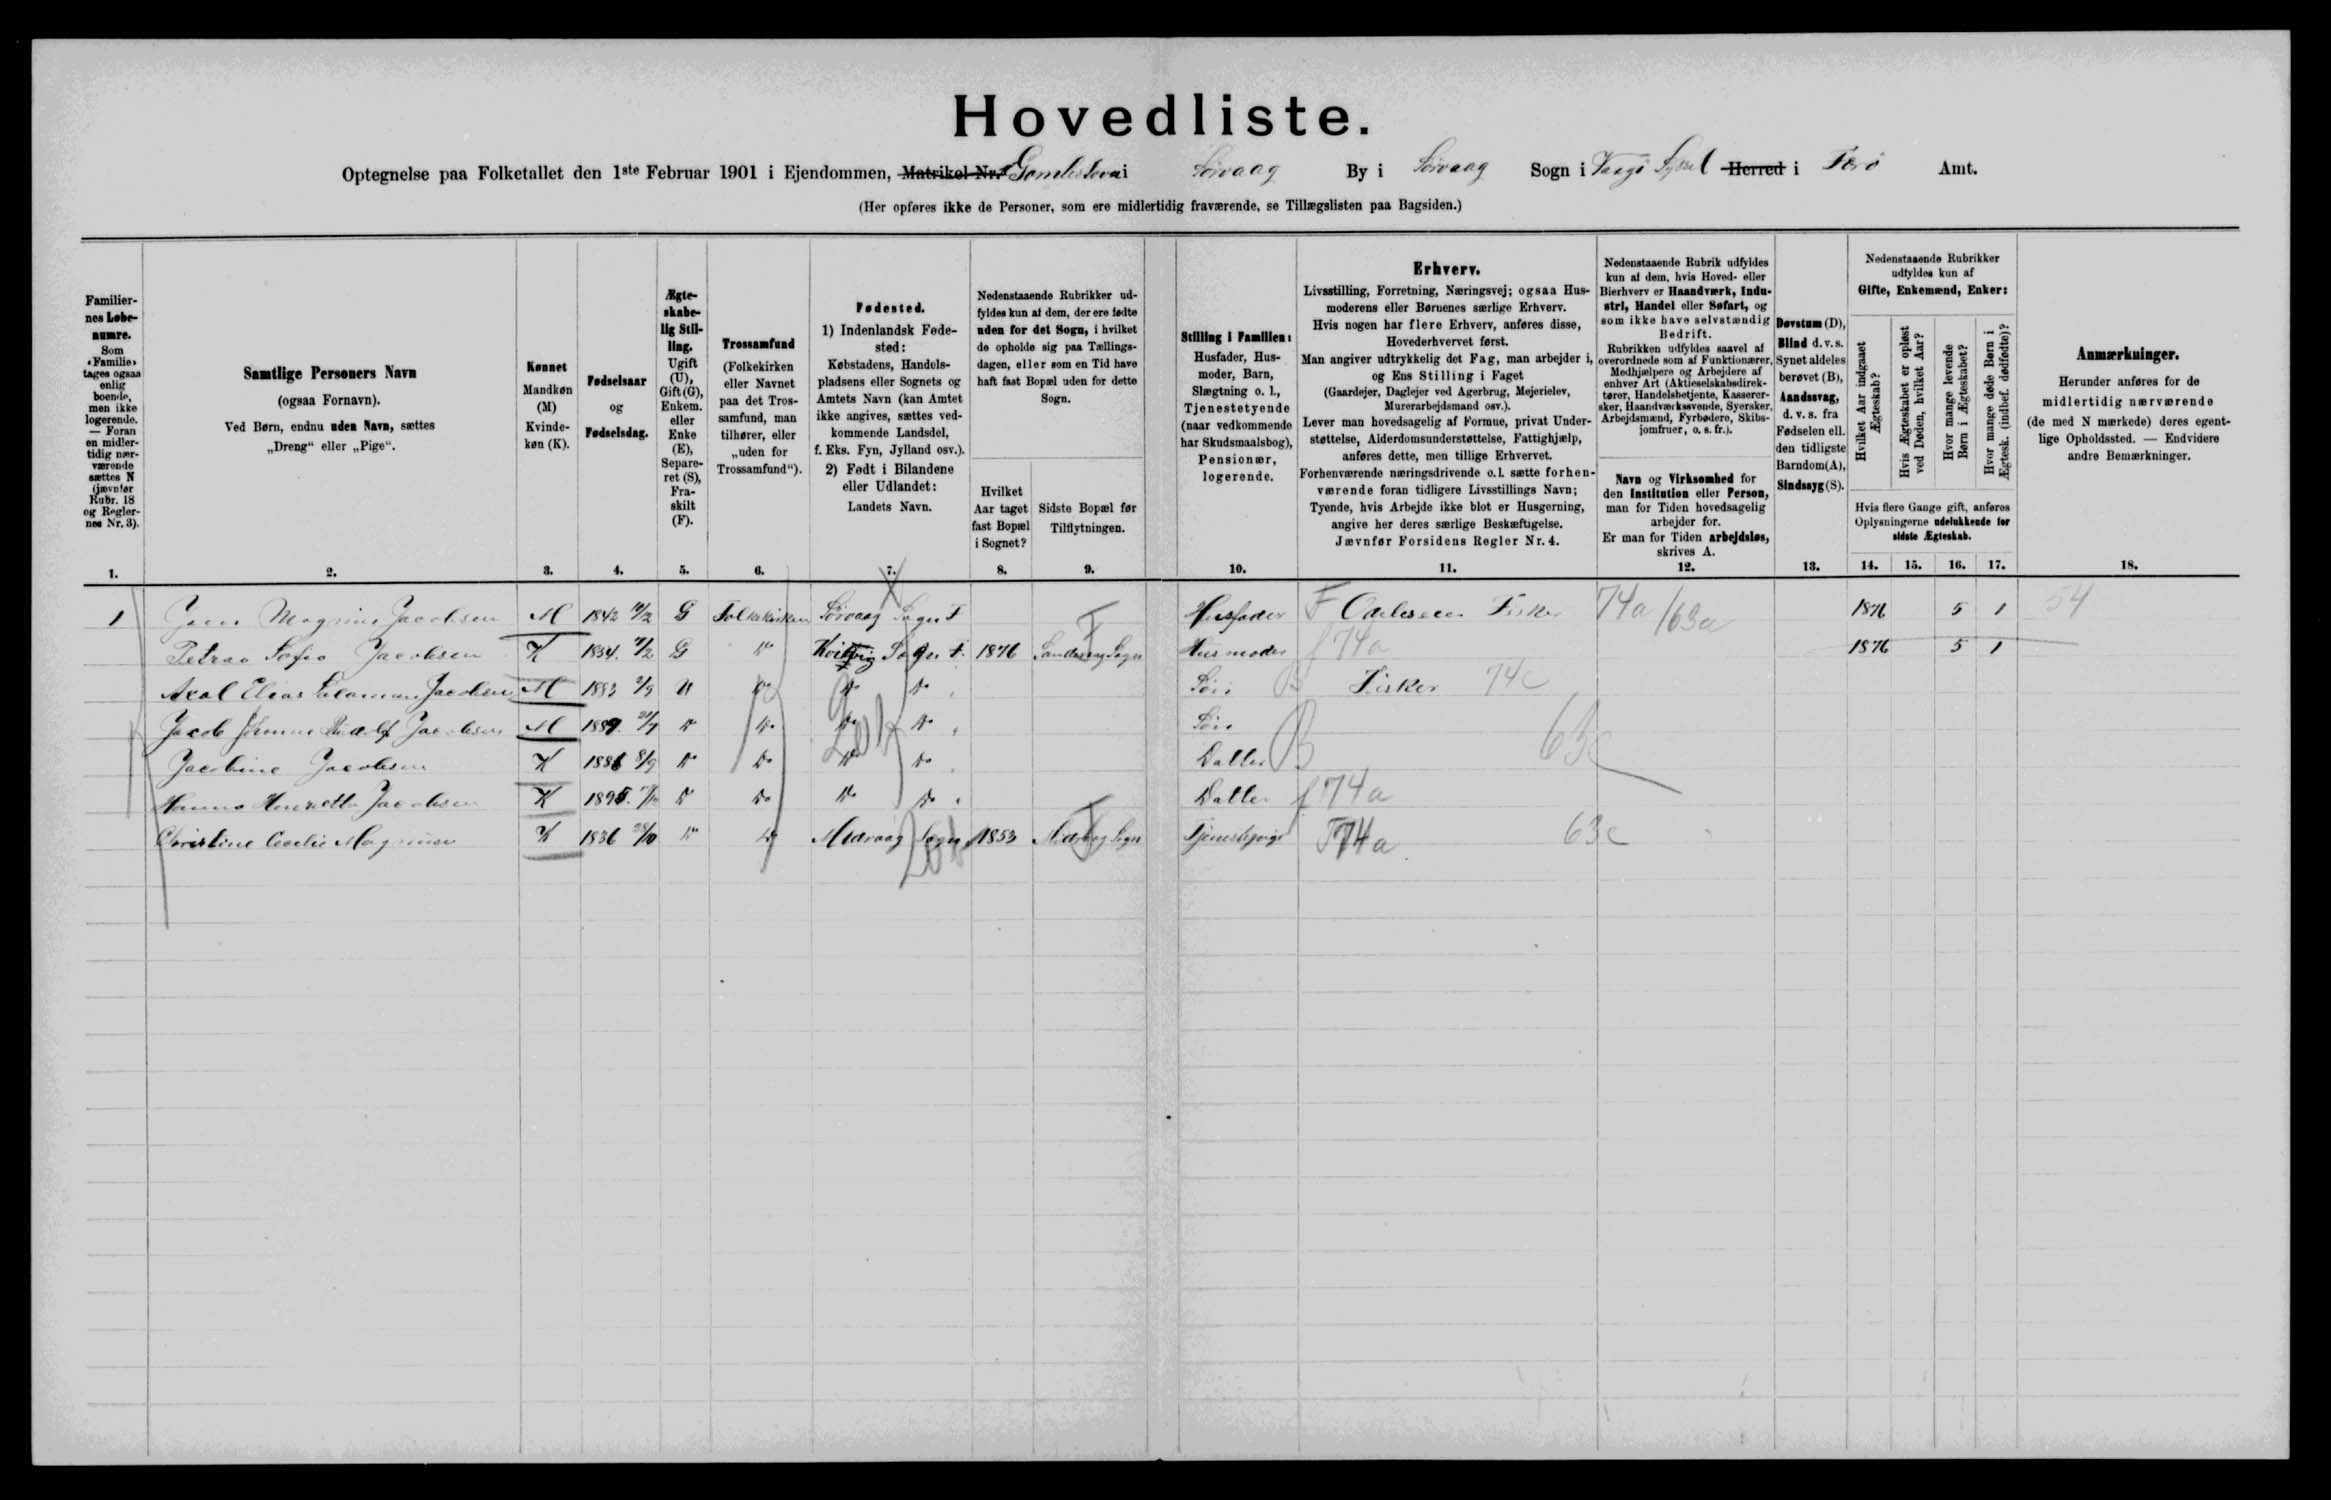 Hovedliste.
Optegnelse paa Folketallet den 1ste Februar 1901 i Ejendommen, Matrikel Nr. i Sörvaag By i Sörvaag Sogn i Vaagö Syssel Herred i Færö Amt.
(Her opføres ikke de Personer, som ere midlertidig fraværende, se Tillægslisten paa Bagsiden.)
Familier-
nes Løbe-
numre.
Som
«Familie»
tages ogsaa
enlig
boende,
men ikke
logerende.
— Foran
en midler-
tidig nær-
værende
sættes N
(jævnfør
Rubr. 18
og Regler-
nes Nr. 3).
Samtlige Personers Navn
(ogsaa Fornavn).
Ved Børn, endnu uden Navn, sættes
„Dreng“ eller „Pige“.
Kønnet
Mandkøn
(M)
Kvinde-
køn (K).
Fødselsaar
og
Fødselsdag.
Ægte-
skabe-
lig Stil-
ling.
Ugift
(U),
Gift (G),
Enkem.
eller
Enke
(E),
Separe-
ret (S),
Fra-
skilt
(F).
Trossamfund
(Folkekirken
eller Navnet
paa det Tros-
samfund, man
tilhører, eller
„uden for
Trossamfund“).
Fødested.
1) Indenlandsk Føde-
sted:
Købstadens, Handels-
pladsens eller Sognets og
Amtets Navn (kan Amtet
ikke angives, sættes ved-
kommende Landsdel,
f. Eks. Fyn, Jylland osv.).
2) Født i Bilandene
eller Udlandet:
Landets Navn.
Nedenstaaende Rubrikker ud-
fyldes kun af dem, der ere fødte
uden for det Sogn, i hvilket
de opholde sig paa Tællings-
dagen, eller som en Tid have
haft fast Bopæl uden for dette
Sogn.
Hvilket
Aar taget
fast Bopæl
i Sognet?
Sidste Bopæl før
Tilflytningen.
Stilling i Familien:
Husfader, Hus-
moder, Barn,
Slægtning o. l.,
Tjenestetyende
(naar vedkommende
har Skudsmaalsbog),
Pensionær,
logerende.
Erhverv.
Livsstilling, Forretning, Næringsvej; ogsaa Hus-
moderens eller Børnenes særlige Erhverv.
Hvis nogen har flere Erhverv, anføres disse,
Hovederhvervet først.
Man angiver udtrykkelig det Fag, man arbejder i,
og Ens Stilling i Faget
(Gaardejer, Daglejer ved Agerbrug, Mejerielev,
Murerarbejdsmand osv.).
Lever man hovedsagelig af Formue, privat Under-
støttelse, Alderdomsunderstøttelse, Fattighjælp,
anføres dette, men tillige Erhvervet.
Forhenværende næringsdrivende o. l. sætte forhen-
værende foran tidligere Livsstillings Navn;
Tyende, hvis Arbejde ikke blot er Husgerning,
angive her deres særlige Beskæftigelse.
Jævnfør Forsidens Regler Nr. 4.
Nedenstaaende Rubrik udfyldes
kun af dem, hvis Hoved- eller
Bierhverv er Haandværk, Indu-
stri, Handel eller Søfart, og
som ikke have selvstændig
Bedrift.
Rubrikken udfyldes saavel af
overordnede som af Funktionærer,
Medhjælpere og Arbejdere af
enhver Art (Aktieselskabsdirek-
tører, Handelsbetjente, Kasserer-
sker, Haandværkssvende, Syersker,
Arbejdsmænd, Fyrbødere, Skibs-
jomfruer, o. s. fr.).
Navn og Virksomhed for
den Institution eller Person,
man for Tiden hovedsagelig
arbejder for.
Er man for Tiden arbejdsløs,
skrives A.
Døvstum (D),
Blind d. v. s.
Synet aldeles
berøvet (B),
Aandssvag,
d. v. s. fra
Fødselen ell.
den tidligste
Barndom (A),
Sindssyg (S).
Nedenstaaende Rubrikker
udfyldes kun af
Gifte, Enkemænd, Enker:
Hvilket Aar indgaaet
Ægteskab?
Hvis Ægteskabet er opløst
ved Døden, hvilket Aar?
Hvor mange levende
Børn i Ægteskabet?
Hvor mange døde Børn i
Ægtesk. (indbef. dødfødte)?
Hvis flere Gange gift, anføres
Oplysningerne udelukkende for
sidste Ægteskab.
Anmærkninger.
Herunder anføres for de
midlertidig nærværende
(de med N mærkede) deres egent-
lige Opholdssted. — Endvidere
andre Bemærkninger.
1. 2. 3. 4. 5. 6. 7. 8. 9. 10. 11. 12. 13. 14. 15. 16. 17. 18.
1 Magnus Jacobsen M 1842 G Folkekirken Sörvaag Sogn F Husfader F Fisker 74a/63a 1876 5 1 54
Sofia Jacobsen K 1854 G Do Sogn F. 1876 Sogn Husmoder f 74a 1876 5 1
Axel Elias Jacobsen M 1883 U Do Do Do Sön B Fisker 74c
Jacob Jacobsen M Do Do Do Sön
Jacobine Jacobsen K 1886 8/9 Do Do Do Do Datter B 63c
Jacobsen K 1895 Do Do Do Do Datter f 74a
Christine Magnusen K 1836 Do Do Midvaag Sogn 1853 Sogn 74a 63c